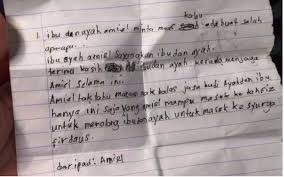 kalu
1. ibu dan ayah amiel minta maaf ada buat salah
apa-apa.
ibu ayah amiel sayangkan ibu dan ayah.
terima kasih ibu dan ayah kerana menjaga
Amiel selama ini.
Amiel tak tahu macam nak balas jasa budi ayah dan ibu
hanya ini saja yang amiel mampu masuk ke tahfiz
untuk menolong ibu dan ayah untuk masuk ke syurga
firdaus.
daripada: Amiel